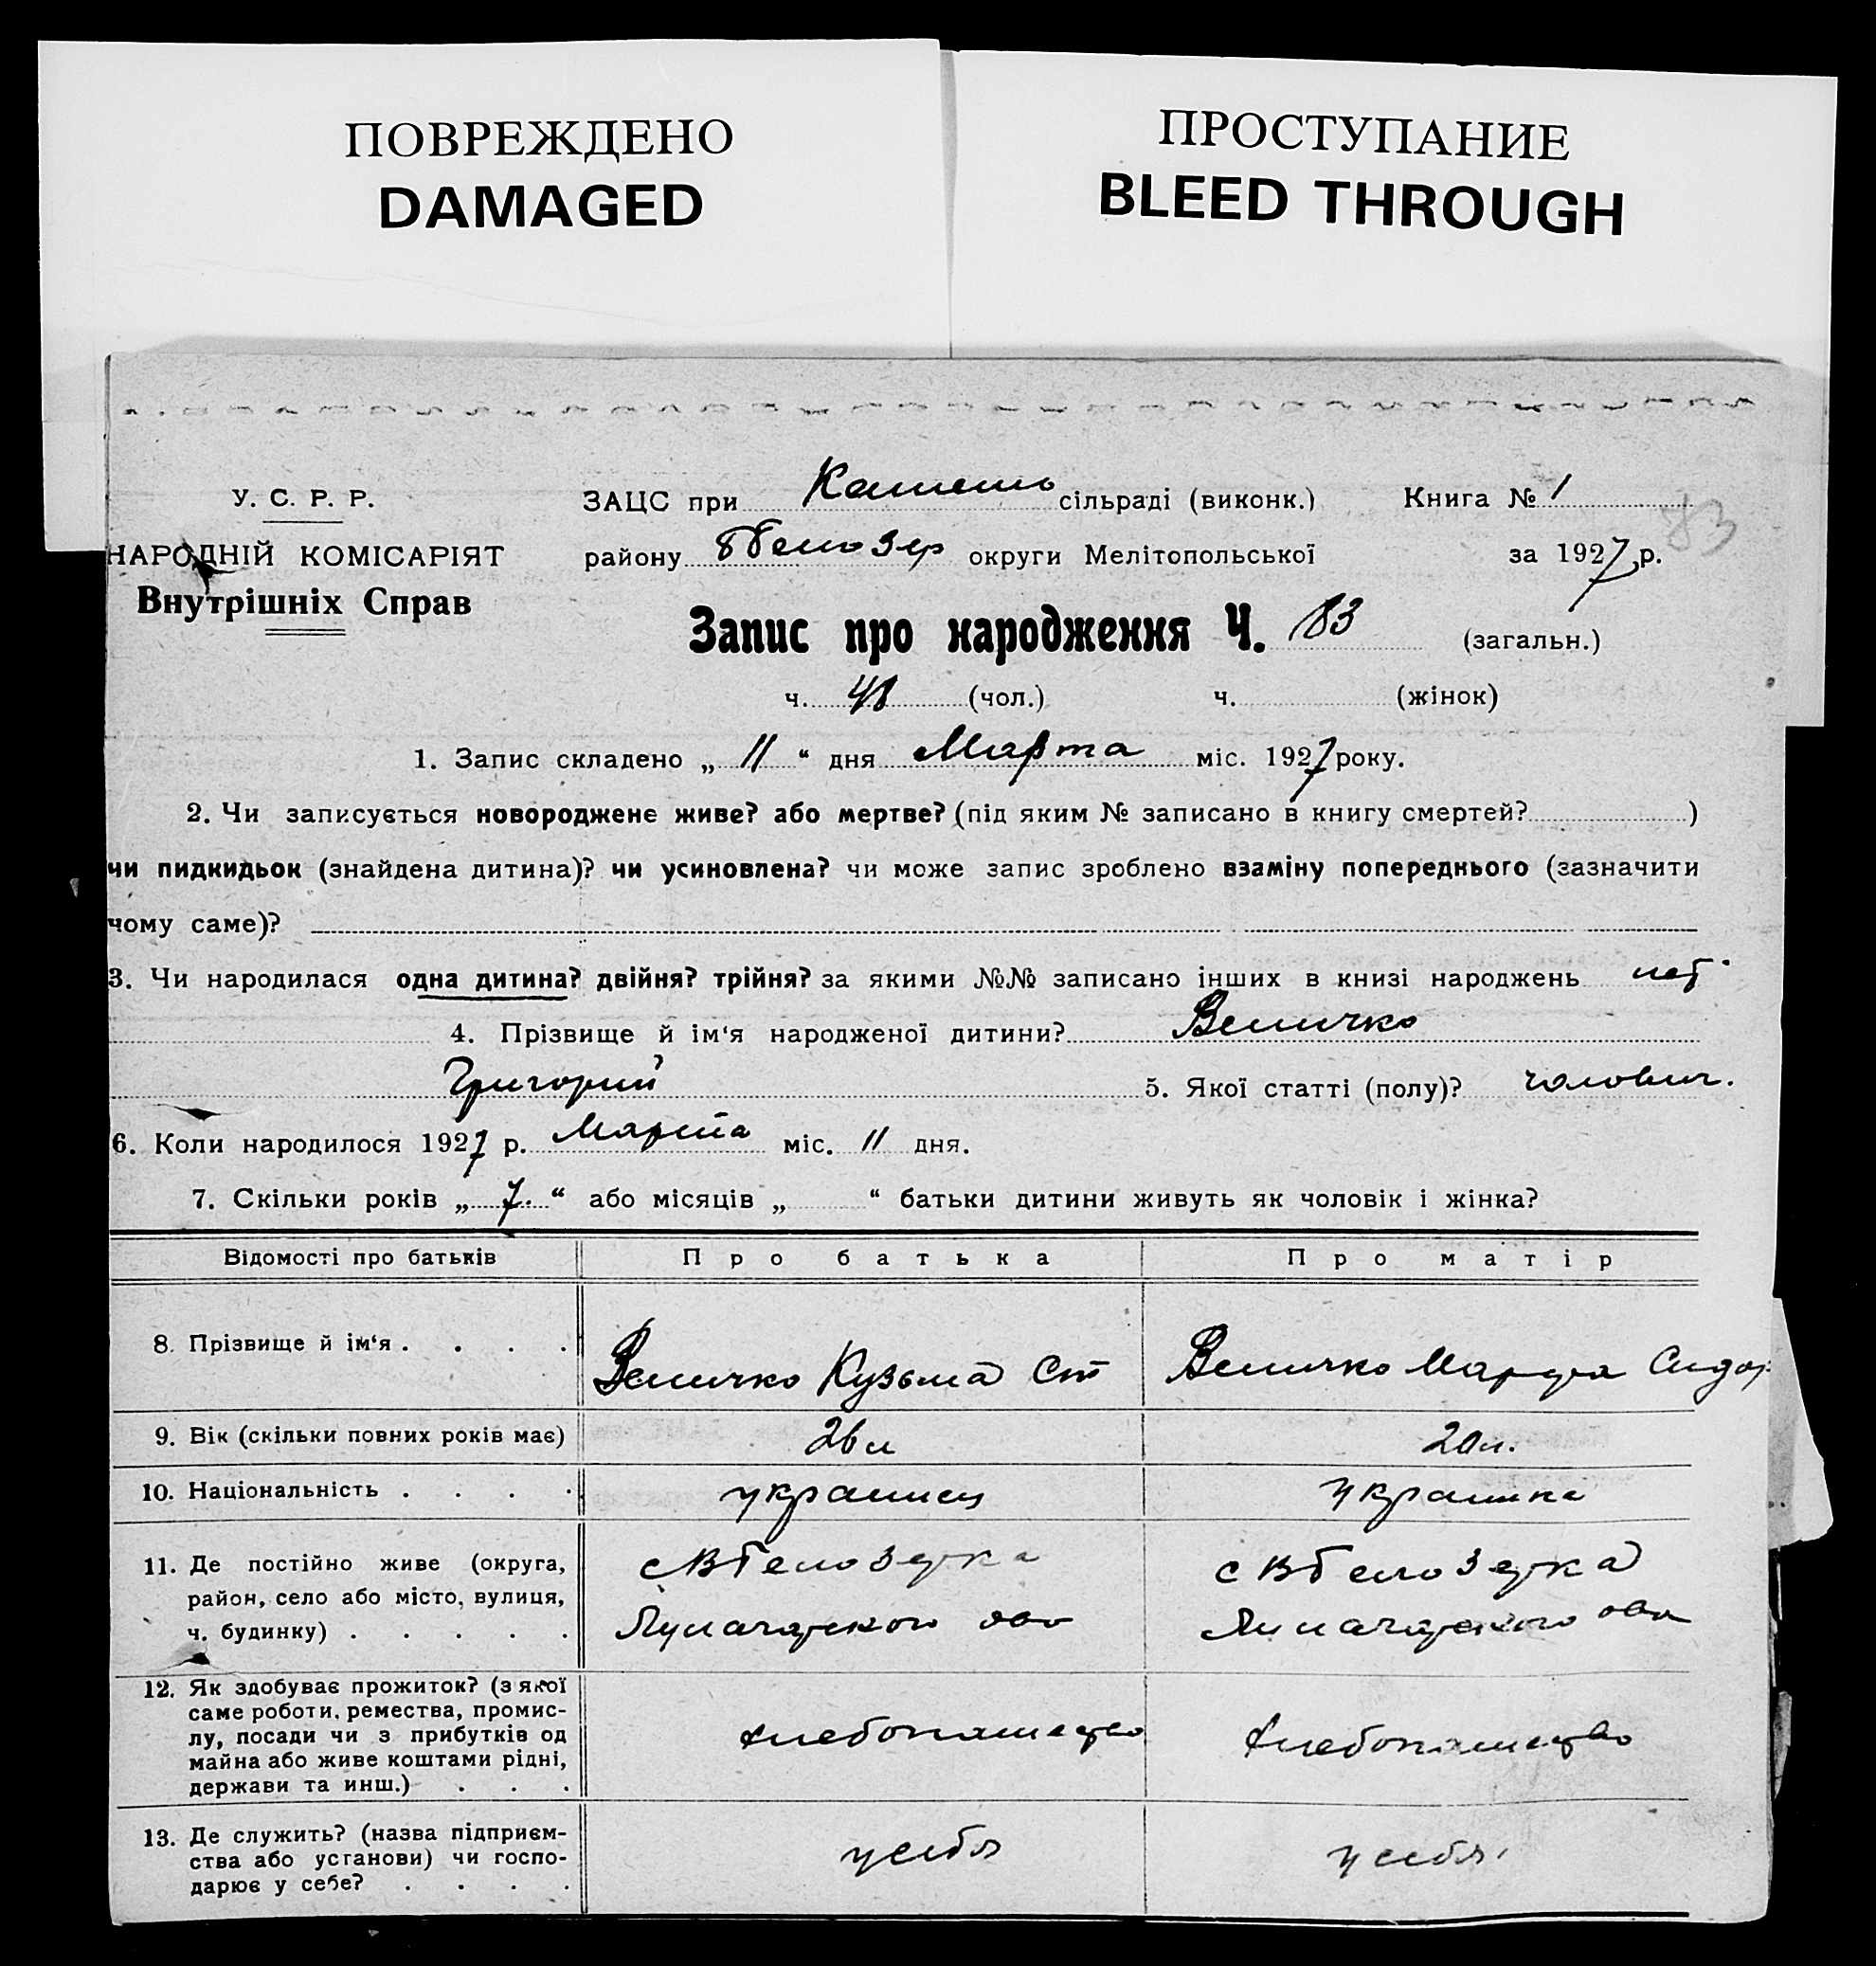 ПОВРЕЖДЕНО
DAMAGED
ПРОСТУПАНИЕ
BLEED THROUGH
У. С. Р. Р.
НАРОДНІЙ КОМІСАРІЯТ
Внутрішніх Справ
ЗАЦС при сільраді (виконк.) Книга № 1
району округи Мелітопольської за 1927 р.
83
Запис про народження Ч. 83 (загальн.)
ч. 48 (чол.) ч. (жінок)
1. Запис складено „ 11 “ дня Марта міс. 1927 року.
2. Чи записується новороджене живе? або мертве? (під яким № записано в книгу смертей? )
чи пидкидьок (знайдена дитина)? чи усиновлена? чи може запис зроблено взаміну попереднього (зазначити
чому саме)?
3. Чи народилася одна дитина? двійня? трійня? за якими №№ записано інших в книзі народжень нет
4. Прізвище й ім‘я народженої дитини? Величко
Григорий 5. Якої статті (полу)? чолович.
6. Коли народилося 1927 р. Марта міс. 11 дня.
7. Скільки років „ 7. “ або місяців „ “ батьки дитини живуть як чоловік і жінка?
Відомості про батьків Про батька Про матір
8. Прізвище й ім‘я . . . . Величко Кузьма Ст Величко Марфа Сидор
9. Вік (скільки повних років має) 26 л 20 л.
10. Національність . . . . украинец украинка
11. Де постійно живе (округа,
район, село або місто, вулиця,
ч. будинку) . . . . .
с В Белозерка
Луначарского
с В Белозерка
Луначарского
12. Як здобуває прожиток? (з якої
саме роботи, ремества, промис-
лу, посади чи з прибутків од
майна або живе коштами рідні,
держави та инш.) . . .
хлебопашество хлебопашество
13. Де служить? (назва підприєм-
ства або установи) чи госпо-
дарює у себе? . . . .
у себя у себя